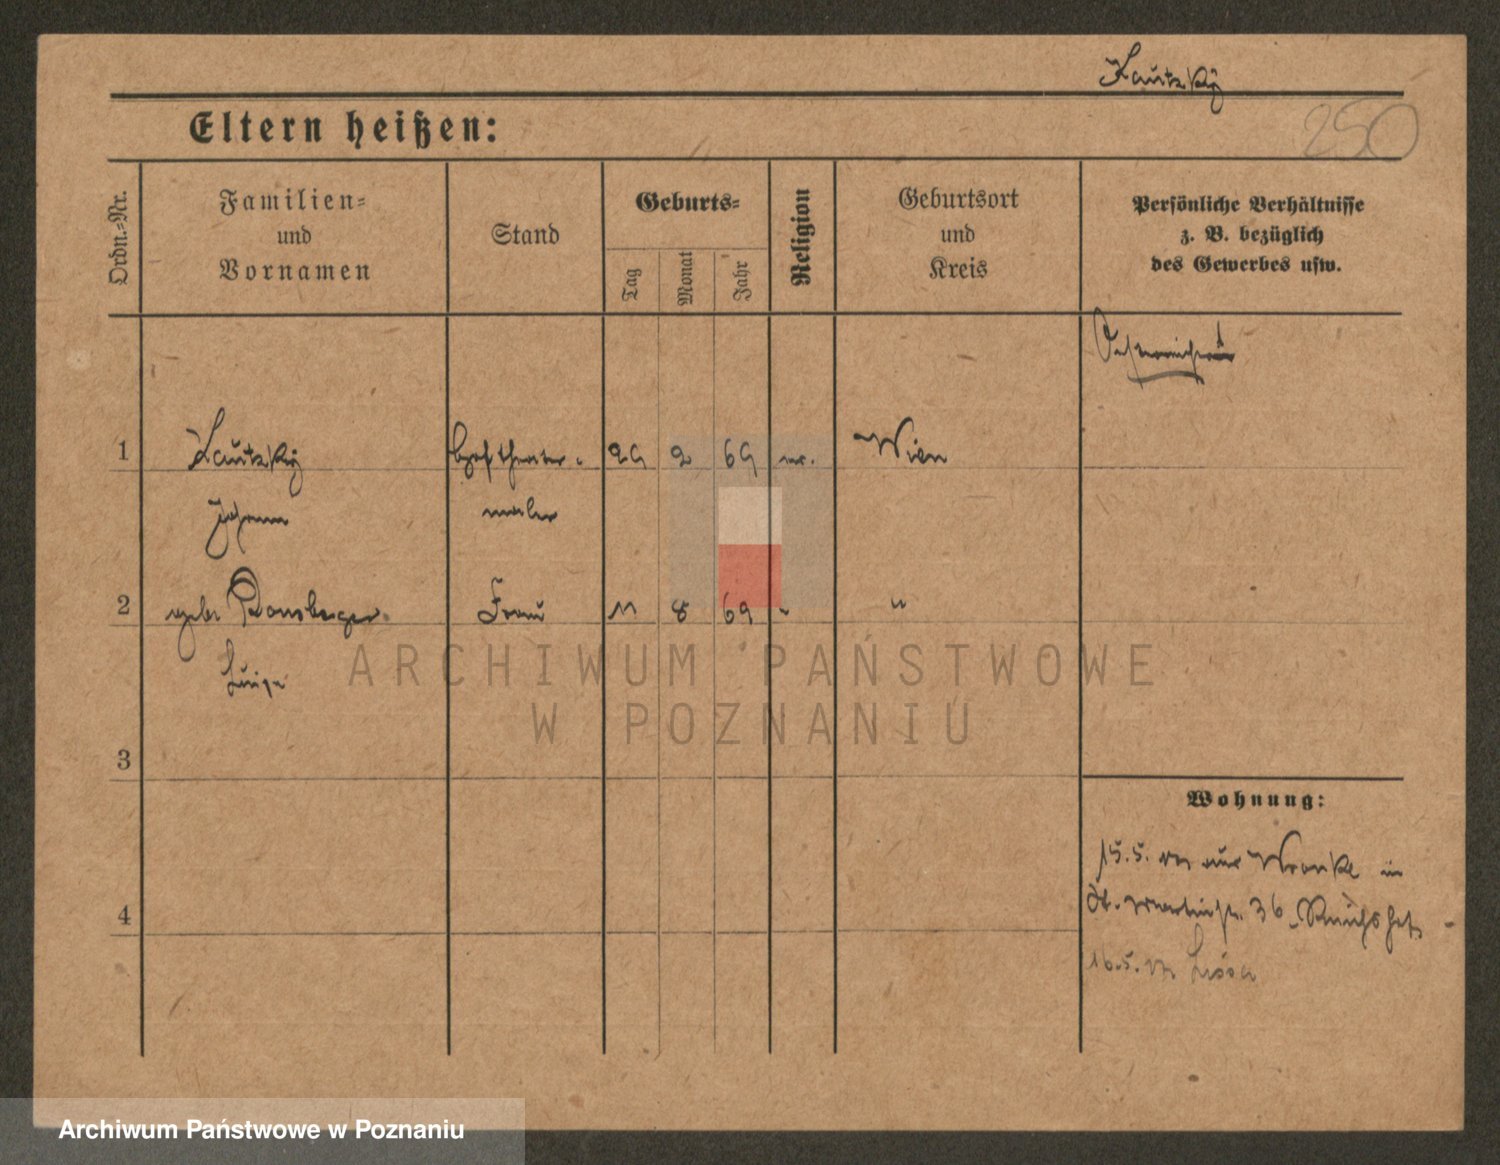 Kautzky
250
Eltern heißen:
Ordn.=Nr.
Familien=
und
Vornamen
Stand
Geburts=
Tag
Monat
Jahr
Religion
Geburtsort
und
Kreis
Persönliche Verhältnisse
z. B. bezüglich
des Gewerbes usw.
1
Kautzky
Hoftheater-
69
Wien
Johann
maler
2
geb. Ramberger
Frau
11
8
69
"
"
Luise
3
4
Wohnung:
15.5. von aus Wronke in
St. Martinstr. 36
16.5. Lissa
ARCHIWUM PAŃSTWOWE
W POZNANIU
Archiwum Państwowe w Poznaniu